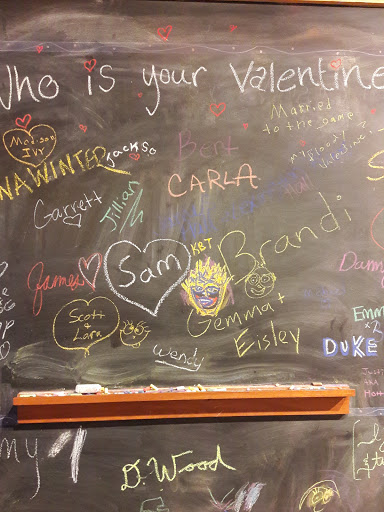 Who is your Valentine
Married
to the game
Madison
Ivy
my bloody
valentine
NAWINTER
Jackso
Bert
CARLA
Garrett
Jillian
KBT
Brandi
Sam
James
Gemma +
Eisley
Scott
+
Lara
Wendy
Emm
x2
DUKE
D. Wood
my